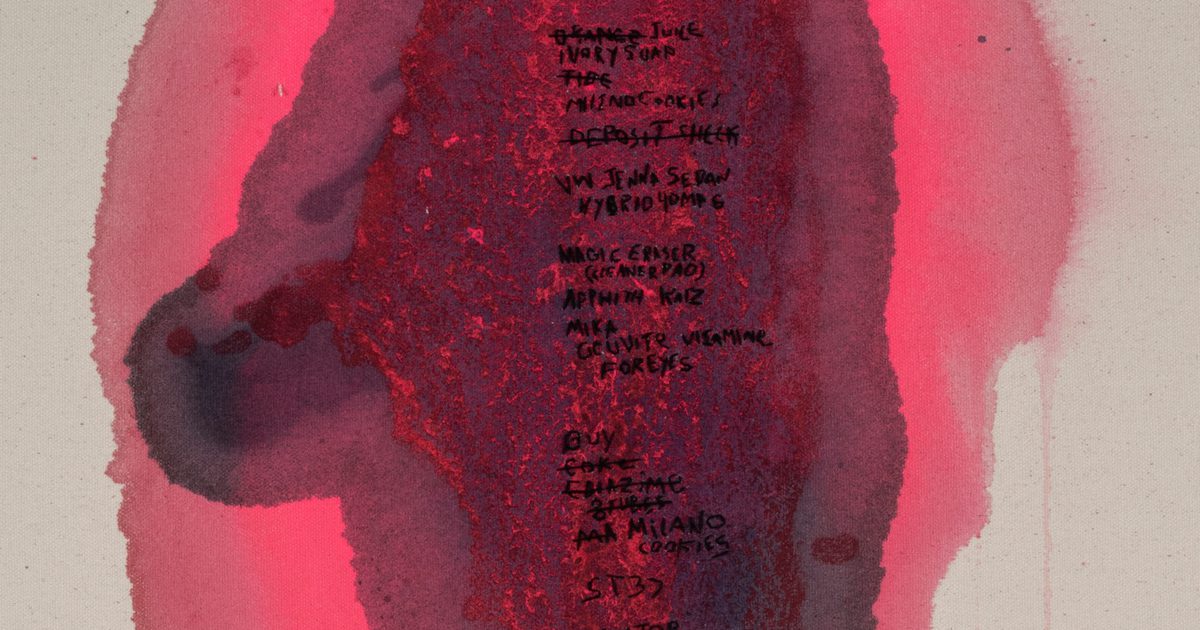 ORANGE JUICE
IVORY SOAP
TIDE
MILANO COOKIES
DEPOSIT CHECK
VW JENNA SEDAN
HYBRID 40 MPG
MAGIC ERASER
(CLEANER PAD)
MIKA
VITAMINE
FOR EYES
BUY
COKE
AAA MILANO
COOKIES